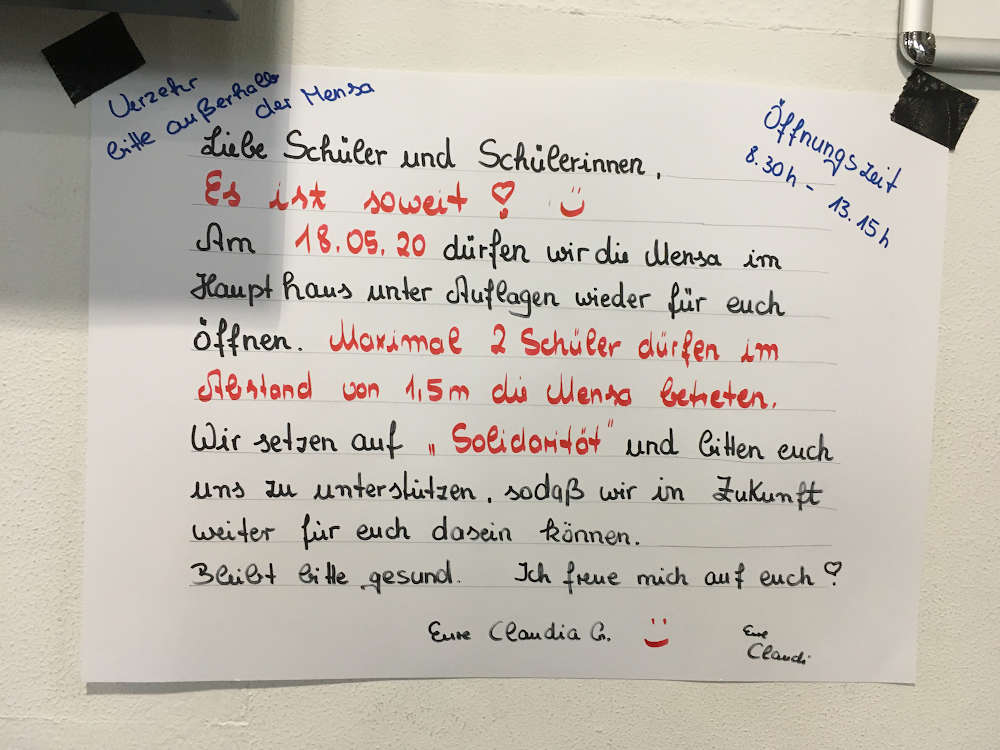 Verzehr
bitte außerhalb
der Mensa
Öffnungszeit
8.30h - 13.15h
Liebe Schüler und Schülerinnen,
Es ist soweit!
Am 18.05.20 dürfen wir die Mensa im
Haupthaus unter Auflagen wieder für euch
öffnen. Maximal 2 Schüler dürfen im
Abstand von 1,5m die Mensa betreten.
Wir setzen auf „Solidarität" und bitten euch
uns zu unterstützen, sodaß wir in Zukunft
weiter für euch dasein können.
Bleibt bitte gesund. Ich freue mich auf euch!
Eure Claudia G.
Eure
Claudi